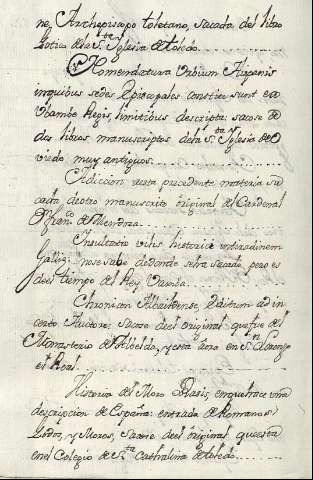 ne, Archepiscopo toletano, sacada del libro
Gotico de la S.ta Yglesia de toledo.
Nomendatura Urbium Hispanie
inquibus sedes Episcopales constite sunt ex
Ubambe Regis, limitibus descripta; sacose de
dos libros manuscriptos de la S.ta Yglesia de O
viedo muy antiguos.
Adiccion a esta precedente materia sa
cada de otro manuscrito original del Cardenal
D.n Fran.co de Mendoza.
Insultatio vilis historice in
Gallię: nose sabe de donde seha sacado, pero es
de el tiempo del Rey Vamba.
Chronicon Albaildense, Editum ab in
certo Auctore; Sacose de el original que fue del
Monasterio de Albelda, y esta aora en S.n Lorenzo
el Real.
Historia del Moro Rasis, enquetrae una
descripcion de España: entrada de Romanos
Godos, y Moros, Sacose de el original, que esta
en el Colegio de S.ta Cathalina de toledo.